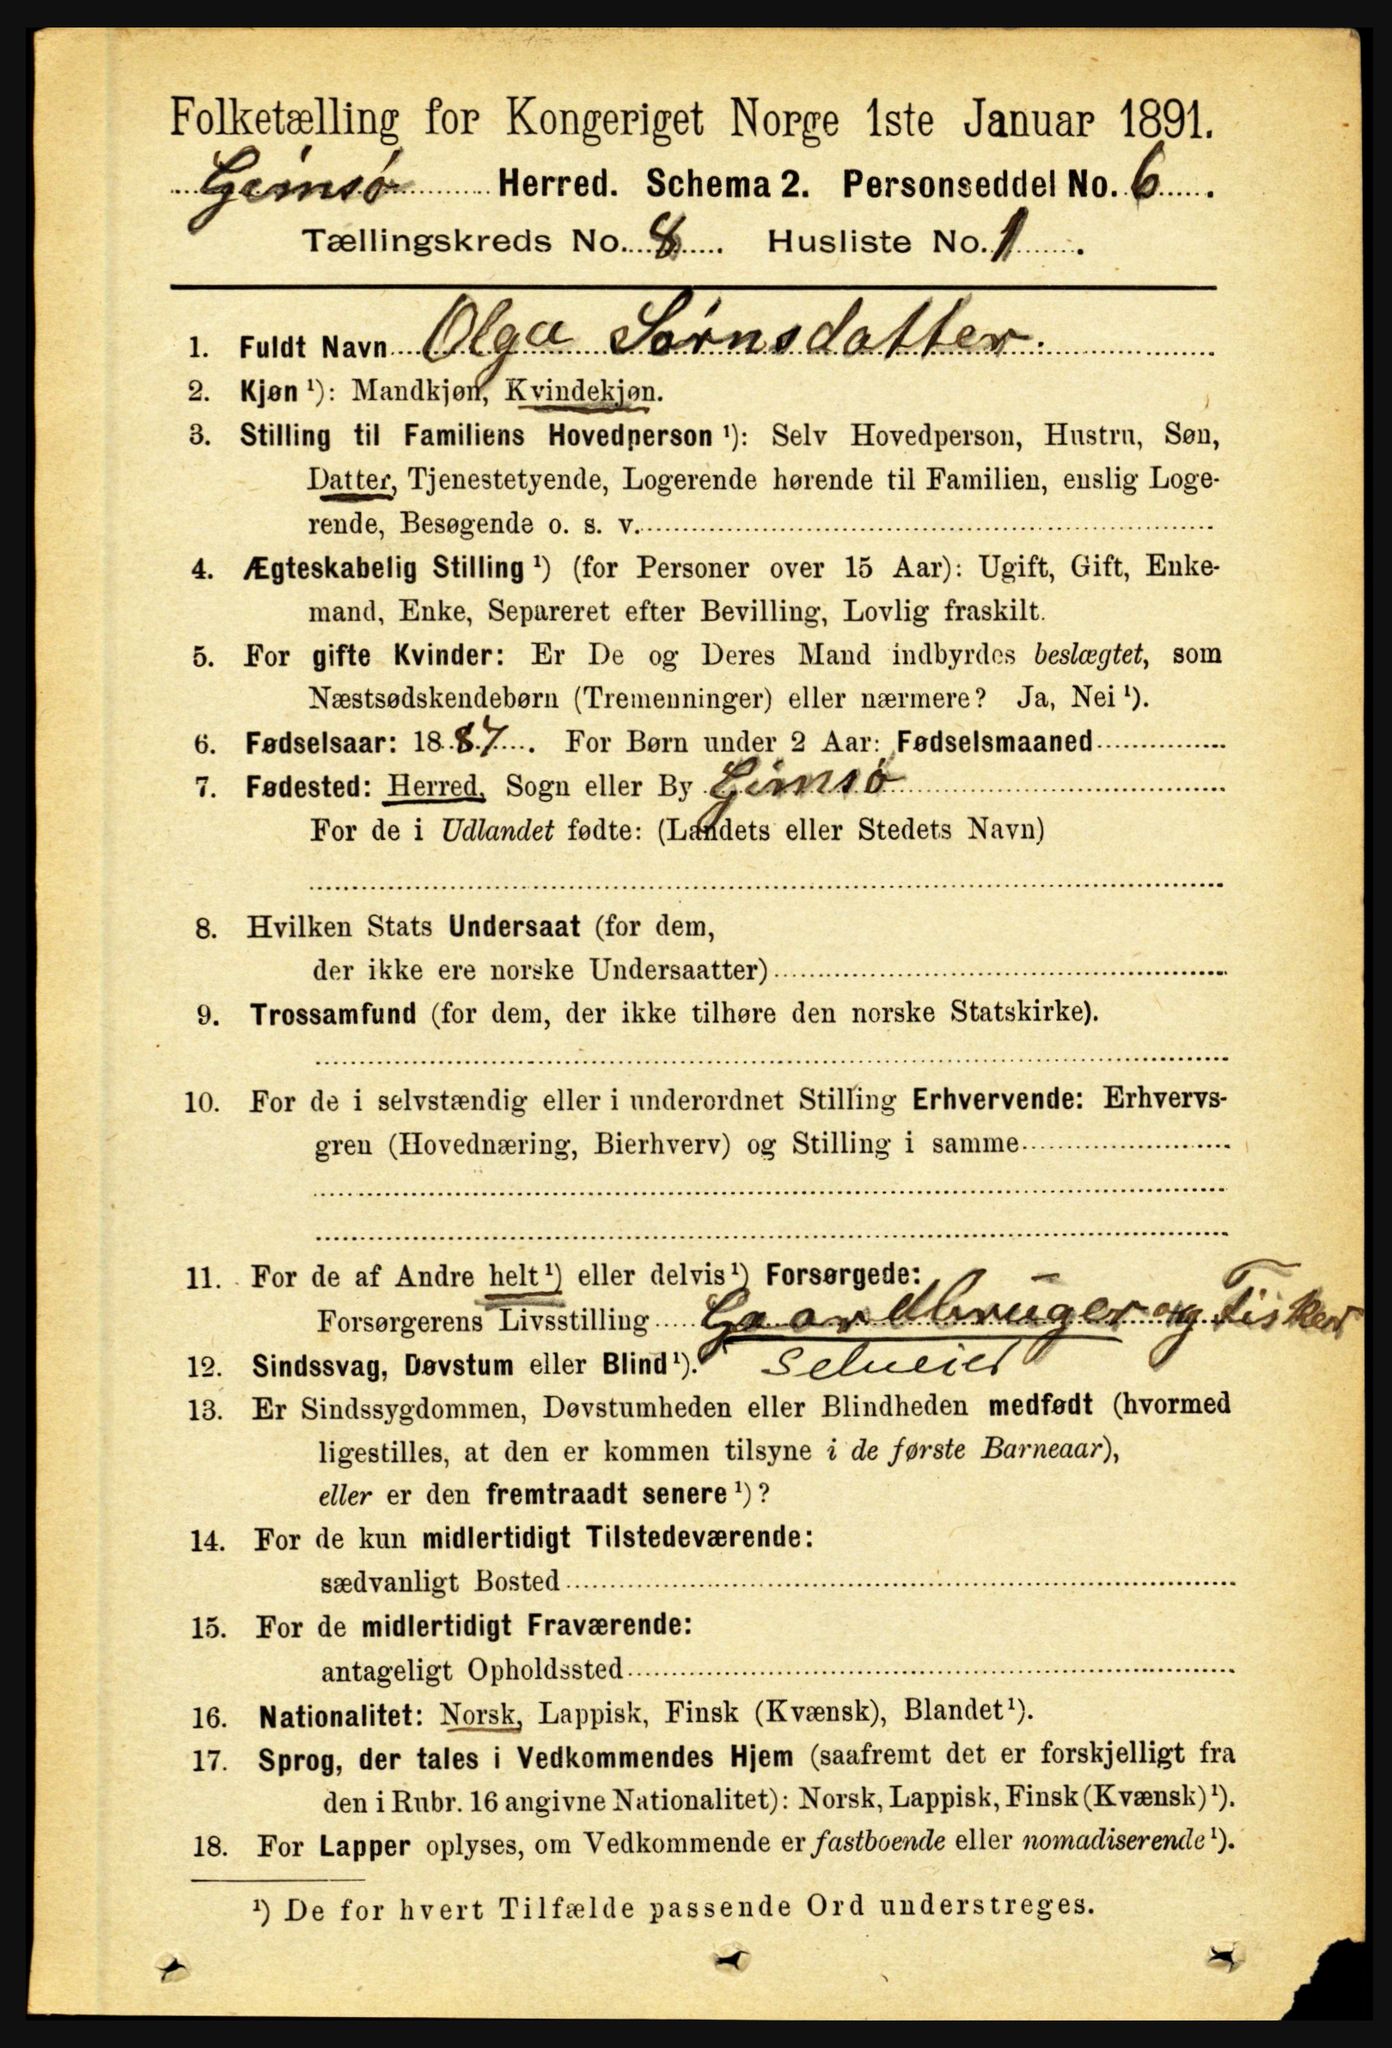 Folketælling for Kongeriget Norge 1ste Januar 1891.
Gimsø Herred. Schema 2. Personseddel No. 6.
Tællingskreds No. 8. Husliste No. 1.
1. Fuldt Navn Olga Sørnsdatter.
2. Kjøn ¹): Mandkjøn, Kvindekjøn.
3. Stilling til Familiens Hovedperson ¹): Selv Hovedperson, Hustru, Søn,
Datter, Tjenestetyende, Logerende hørende til Familien, enslig Loge-
rende, Besøgende o. s. v.
4. Ægteskabelig Stilling ¹) (for Personer over 15 Aar): Ugift, Gift, Enke-
mand, Enke, Separeret efter Bevilling, Lovlig fraskilt.
5. For gifte Kvinder: Er De og Deres Mand indbyrdes beslægtet, som
Næstsødskendebørn (Tremenninger) eller nærmere? Ja, Nei ¹).
6. Fødselsaar: 1887. For Børn under 2 Aar: Fødselsmaaned
7. Fødested: Herred, Sogn eller By Gimsø
For de i Udlandet fødte: (Landets eller Stedets Navn)
8. Hvilken Stats Undersaat (for dem,
der ikke ere norske Undersaatter)
9. Trossamfund (for dem, der ikke tilhøre den norske Statskirke).
10. For de i selvstændig eller i underordnet Stilling Erhvervende: Erhvervs-
gren (Hovednæring, Bierhverv) og Stilling i samme
11. For de af Andre helt ¹) eller delvis ¹) Forsørgede:
Forsørgerens Livsstilling Gaardbruger og Fisker
12. Sindssvag, Døvstum eller Blind ¹). Selveier
13. Er Sindssygdommen, Døvstumheden eller Blindheden medfødt (hvormed
ligestilles, at den er kommen tilsyne i de første Barneaar),
eller er den fremtraadt senere ¹)?
14. For de kun midlertidigt Tilstedeværende:
sædvanligt Bosted
15. For de midlertidigt Fraværende:
antageligt Opholdssted
16. Nationalitet: Norsk, Lappisk, Finsk (Kvænsk), Blandet ¹).
17. Sprog, der tales i Vedkommendes Hjem (saafremt det er forskjelligt fra
den i Rubr. 16 angivne Nationalitet): Norsk, Lappisk, Finsk (Kvænsk) ¹).
18. For Lapper oplyses, om Vedkommende er fastboende eller nomadiserende ¹).
¹) De for hvert Tilfælde passende Ord understreges.